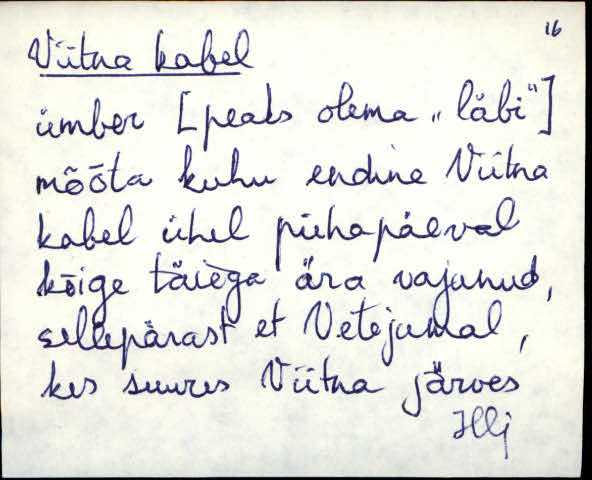 16
Viitna kabel
ümber [peaks olema „läbi"]
mõõta kuhu endine Viitna
kabel ühel pühapäeval
kõige täiega ära vajunud,
sellepärast et Vetejumal,
kes suures Viitna järves